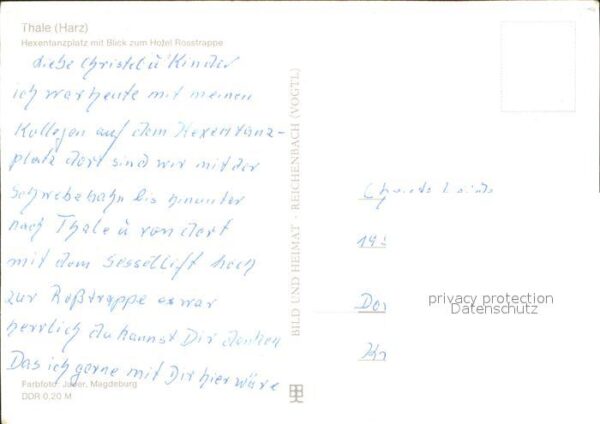 Thale (Harz)
Hexentanzplatz mit Blick zum Hotel Rosstrappe
Liebe Christel u Kinder
ich war heute mit meinen
Kollegen auf dem Hexentanz-
platz dort sind wir mit der
Schwebebahn bis hinunter
nach Thale u von dort
mit dem Sessellift hoch
zur Roßtrappe es war
herrlich du kannst Dir denken
Das ich gerne mit Dir hier wäre
Farbfoto: Jäger, Magdeburg
DDR 0,20 M
BILD UND HEIMAT · REICHENBACH (VOGTL)
privacy protection
Datenschutz